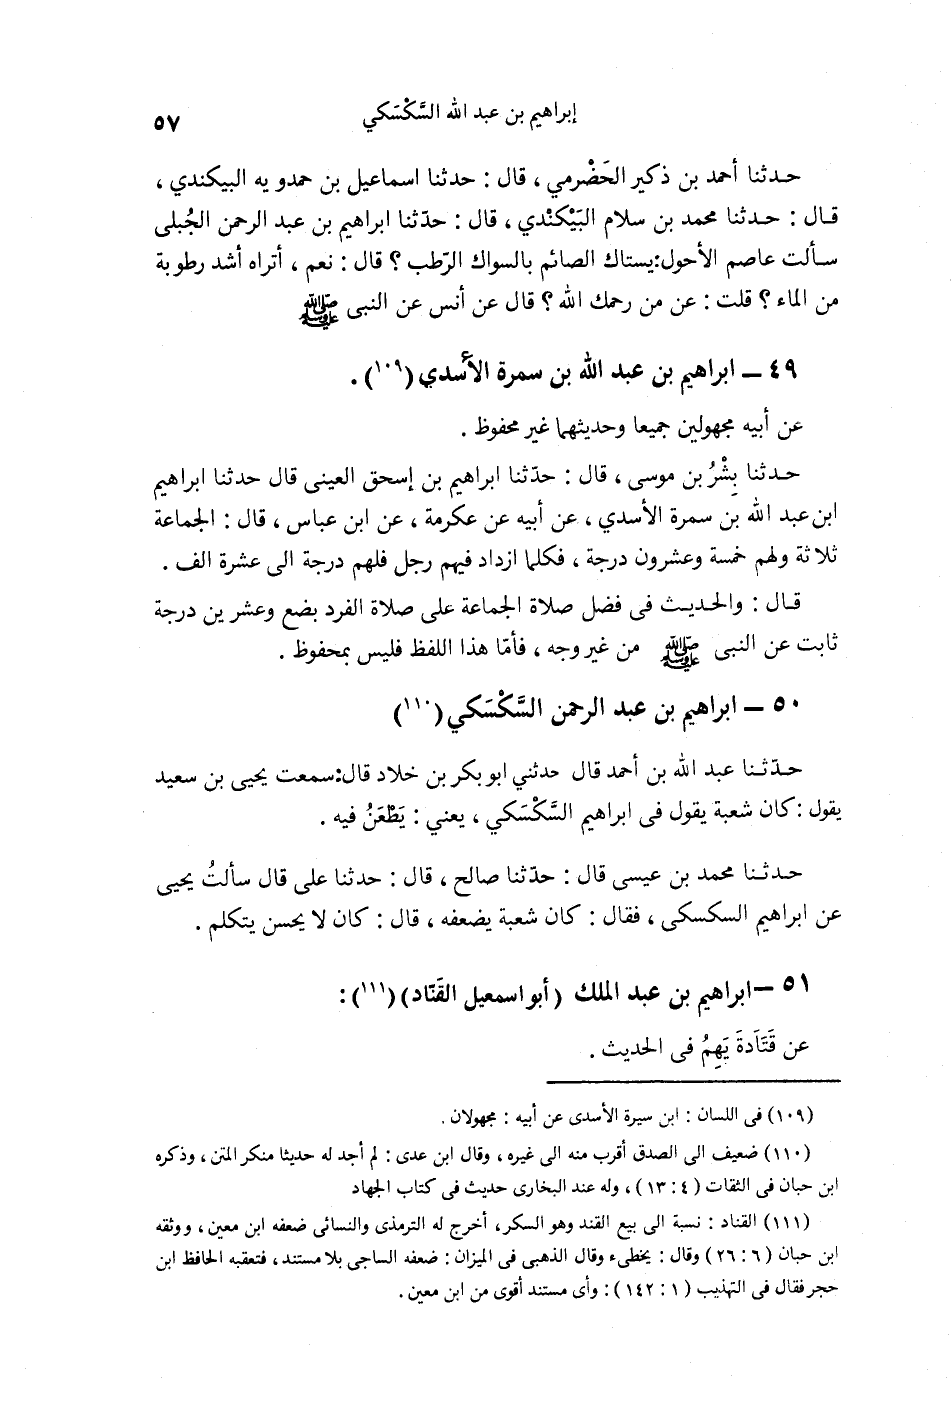 إبراهيم بن عبد الله السَّكْسَكي
٥٧
حـدثنا أحمد بن ذكير الحَضْرمي ، قال : حدثنا اسماعيل بن حمدو يه البيكندي ،
قـال : حـدثنا محمد بن سلام البَيْكنْدي ، قال : حدّثنا ابراهيم بن عبد الرحمن الجُبلى
سـألت عاصم الأحول:يستاك الصائم بالسواك الرّطب ؟ قال : نعم ، أتراه أشد رطوبة
من الماء ؟ قلت : عن من رحمك الله ؟ قال عن أنس عن النبى ﷺ
٤٩ ــ ابراهيم بن عبد الله بن سمرة الأسدي (١٠٩) .
عن أبيه مجهولين جميعا وحديثهما غير محفوظ .
حـدثنا بِشْرُ بن موسى ، قال : حدّثنا ابراهيم بن إسحق العينى قال حدثنا ابراهيم
ابن عبد الله بن سمرة الأسدي ، عن أبيه عن عكرمة ، عن ابن عباس ، قال : الجماعة
ثلاثة ولهم خمسة وعشرون درجة ، فكلما ازداد فيهم رجل فلهم درجة الى عشرة الف .
قـال : والحديث فى فضل صلاة الجماعة على صلاة الفرد بضع وعشر ين درجة
ثابت عن النبى ﷺ من غير وجه ، فأمّا هذا اللفظ فليس بمحفوظ .
٥٠ ــ ابراهيم بن عبد الرحمن السَّكْسَكي (١١٠)
حـدّثـنا عبد الله بن أحمد قال حدثني ابو بكر بن خلاد قال:سمعت يحيى بن سعيد
يقول :كان شعبة يقول فى ابراهيم السَّكْسَكي ، يعني : يَطْعَنُ فيه .
حـدثـنا محمد بن عيسى قال : حدّثنا صالح ، قال : حدثنا على قال سألتُ يحيى
عن ابراهيم السكسكى ، فقال : كان شعبة يضعفه ، قال : كان لا يحسن يتكلم .
٥١ ــ ابراهيم بن عبد الملك (أبو اسمعيل القَنّاد) (١١١) :
عن قَتَادَةَ يَهِمُ فى الحديث .
(١٠٩) فى اللسان : ابن سيرة الأسدى عن أبيه : مجهولان .
(١١٠) ضعيف الى الصدق أقرب منه الى غيره ، وقال ابن عدى : لم أجد له حديثا منكر المتن ، وذكره
ابن حبان فى الثقات (٤ : ١٣) ، وله عند البخارى حديث فى كتاب الجهاد
(١١١) القناد : نسبة الى بيع القند وهو السكر، أخرج له الترمذى والنسائى ضعفه ابن معين ، ووثقه
ابن حبان (٦ : ٢٦) وقال : يخطىء وقال الذهبى فى الميزان : ضعفه الساجى بلا مستند ، فتعقبه الحافظ ابن
حجر فقال فى التهذيب (١ : ١٤٢) : وأى مستند أقوى من ابن معين .